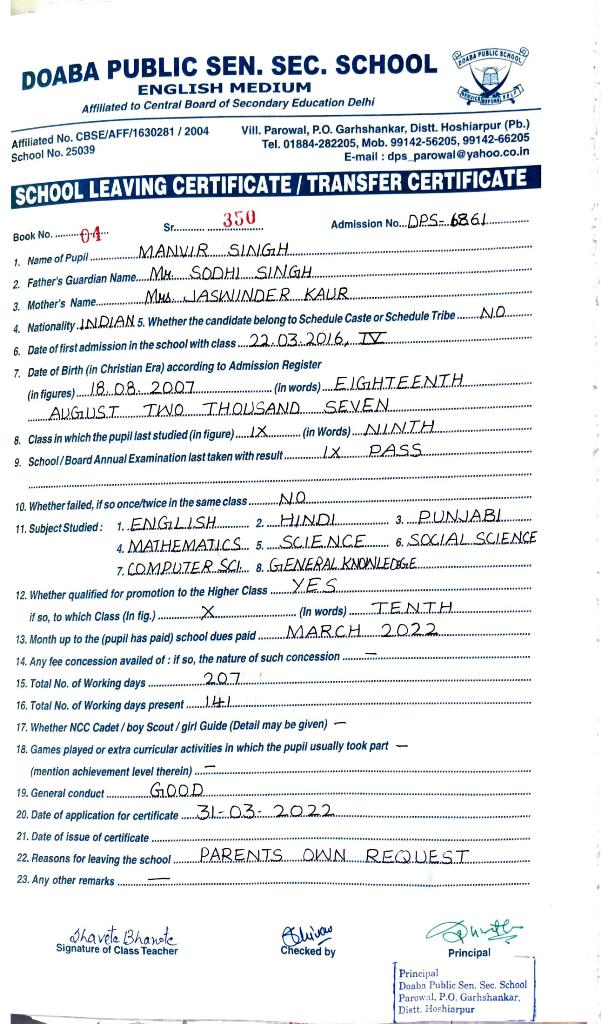 DOABA PUBLIC SEN. SEC. SCHOOL
ENGLISH MEDIUM
Affiliated to Central Board of Secondary Education Delhi
DOABA PUBLIC SCHOOL
Affiliated No. CBSE/AFF/1630281 / 2004
School No. 25039
Vill. Parowal, P.O. Garhshankar, Distt. Hoshiarpur (Pb.)
Tel. 01884-282205, Mob. 99142-56205, 99142-66205
E-mail : dps_parowal@yahoo.co.in
SCHOOL LEAVING CERTIFICATE / TRANSFER CERTIFICATE
Book No. 04 Sr. 350 Admission No. DPS-6861
1. Name of Pupil MANVIR SINGH
2. Father's Guardian Name Mr. SODHI SINGH
3. Mother's Name Mrs. JASWINDER KAUR
4. Nationality INDIAN 5. Whether the candidate belong to Schedule Caste or Schedule Tribe NO
6. Date of first admission in the school with class 22.03.2016, IV
7. Date of Birth (in Christian Era) according to Admission Register
(in figures) 18.08.2007 (in words) EIGHTEENTH
AUGUST TWO THOUSAND SEVEN
8. Class in which the pupil last studied (in figure) IX (in Words) NINTH
9. School / Board Annual Examination last taken with result IX PASS
10. Whether failed, if so once/twice in the same class NO
11. Subject Studied : 1. ENGLISH 2. HINDI 3. PUNJABI
4. MATHEMATICS 5. SCIENCE 6. SOCIAL SCIENCE
7. COMPUTER SCI. 8. GENERAL KNOWLEDGE
12. Whether qualified for promotion to the Higher Class YES
if so, to which Class (In fig.) X (In words) TENTH
13. Month up to the (pupil has paid) school dues paid MARCH 2022
14. Any fee concession availed of : if so, the nature of such concession —
15. Total No. of Working days 207
16. Total No. of Working days present 141
17. Whether NCC Cadet / boy Scout / girl Guide (Detail may be given) —
18. Games played or extra curricular activities in which the pupil usually took part —
(mention achievement level therein) —
19. General conduct GOOD
20. Date of application for certificate 31-03-2022
21. Date of issue of certificate
22. Reasons for leaving the school PARENTS OWN REQUEST
23. Any other remarks —
Shaveta Bhanote
Signature of Class Teacher Checked by Principal
Principal
Doaba Public Sen. Sec. School
Parowal, P.O. Garhshankar,
Distt. Hoshiarpur